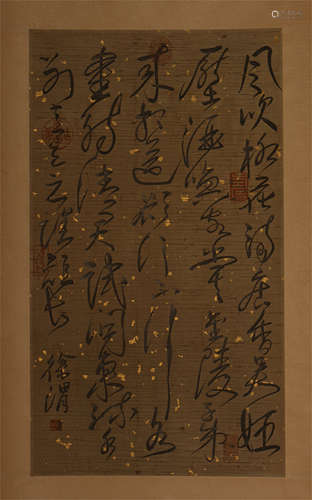 風吹柳花滿店香吳姬
壓酒喚客嘗金陵子弟
來相送欲行不行各
盡觴請君試問東流水
別意與之誰短長
徐渭